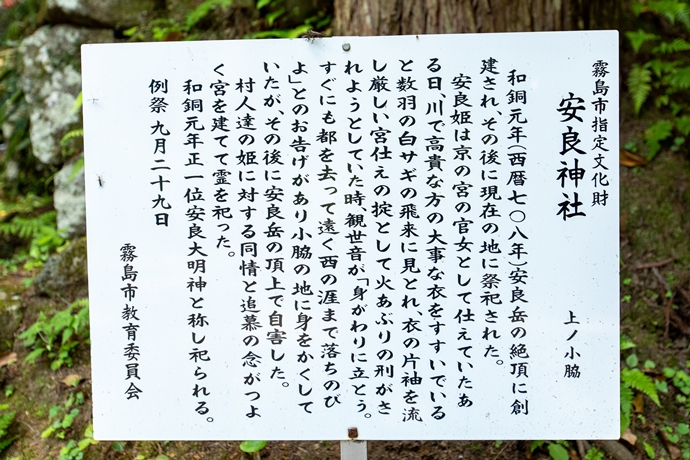 霧島市指定文化財
安良神社
上ノ小脇
和銅元年(西暦七〇八年)安良岳の絶頂に創
建され、その後に現在の地に祭祀された。
安良姫は京の宮の官女として仕えていたあ
る日、川で高貴な方の大事な衣をすすいでいる
と数羽の白サギの飛来に見とれ、衣の片袖を流
し厳しい宮仕えの掟として火あぶりの刑がさ
れようとしていた時、観世音が「身がわりに立とう。
すぐにも都を去って遠く西の涯まで落ちのび
よ」とのお告げがあり小脇の地に身をかくして
いたが、その後に安良岳の頂上で自害した。
村人達の姫に対する同情と追慕の念がつよ
く宮を建てて霊を祀った。
和銅元年正一位安良大明神と称し祀られる。
例祭 九月二十九日
霧島市教育委員会